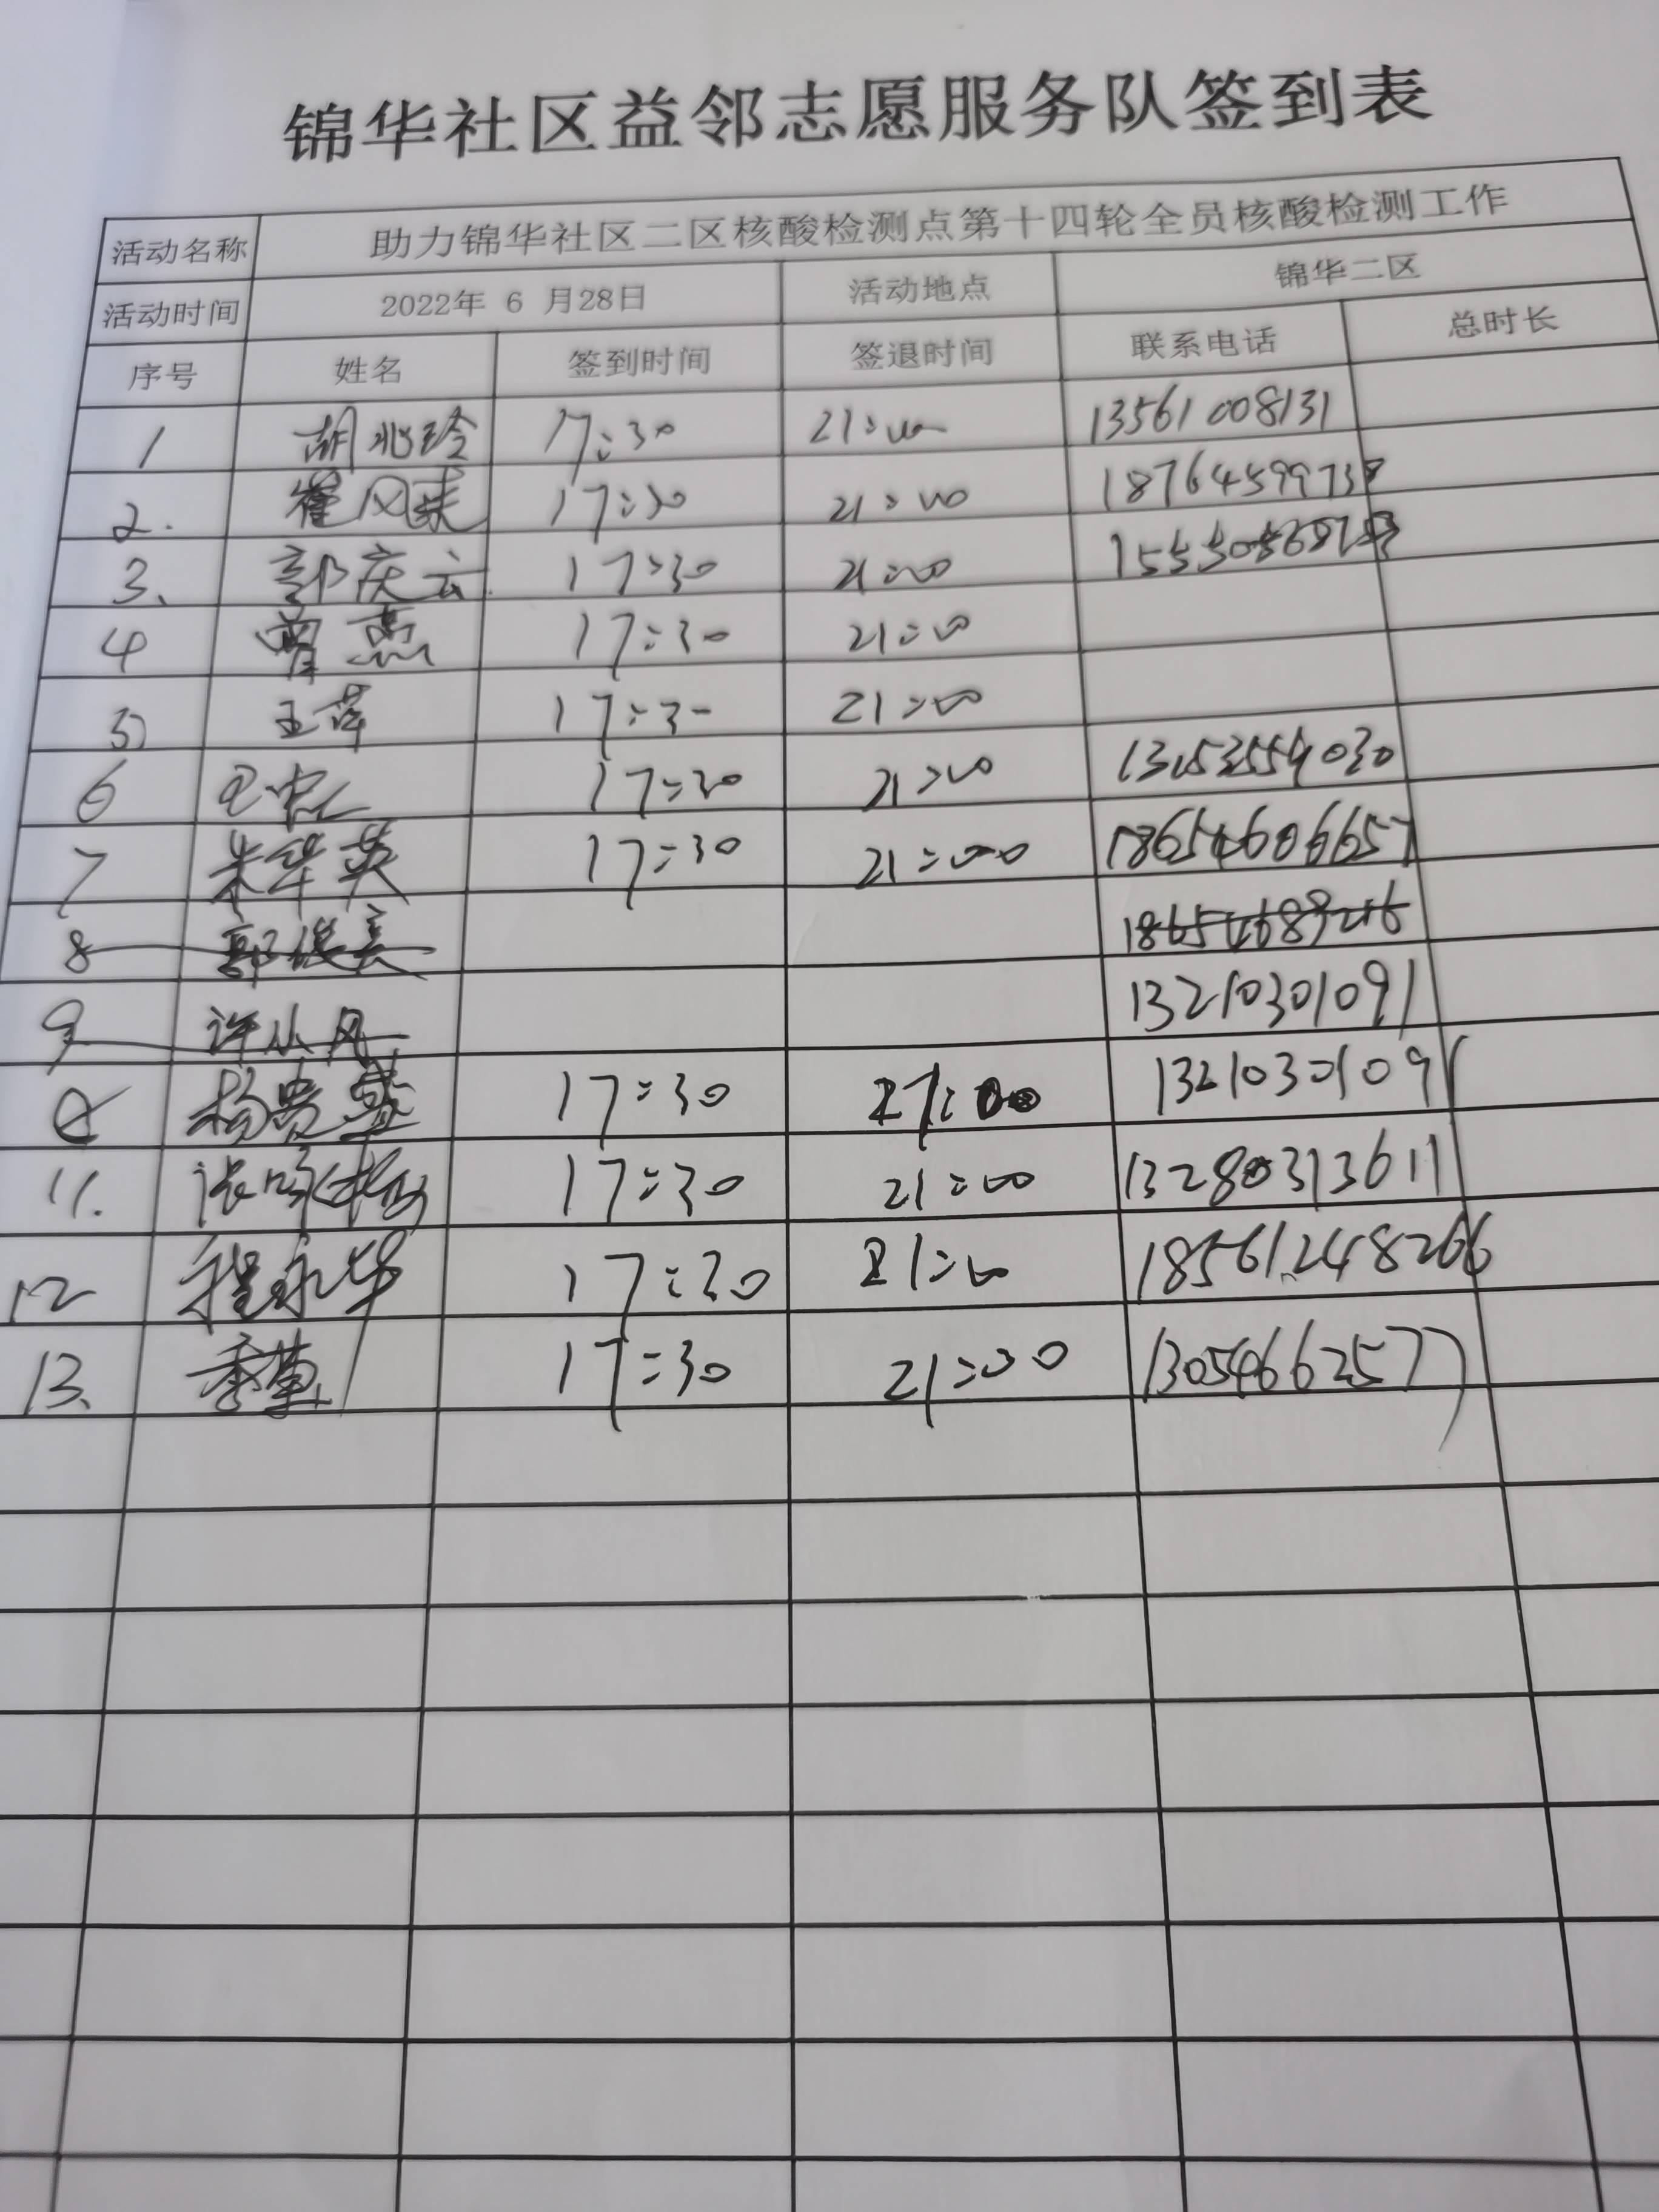 锦华社区益邻志愿服务队签到表
活动名称 助力锦华社区二区核酸检测点第十四轮全员核酸检测工作
活动时间 2022年 6 月28日 活动地点 锦华二区
序号 姓名 签到时间 签退时间 联系电话 总时长
1 胡兆玲 17:30 21:00 13561008131
2. 17:30 21:00 18764599738
3、 郭庆云 17:30 21:00
4 曾燕 17:30 21:00
5 王萍 17:30 21:00
6 17:30 21:00
7 朱华英 17:30 21:00 18654606657
8 郭俊美 18654689216
9 许小风 13210301091
杨贵盛 17:30 21:00 13210301091
11. 17:30 21:00 13280313611
12 程永华 17:30 21:00 18561248266
13、 季董 17:30 21:30 13054662577